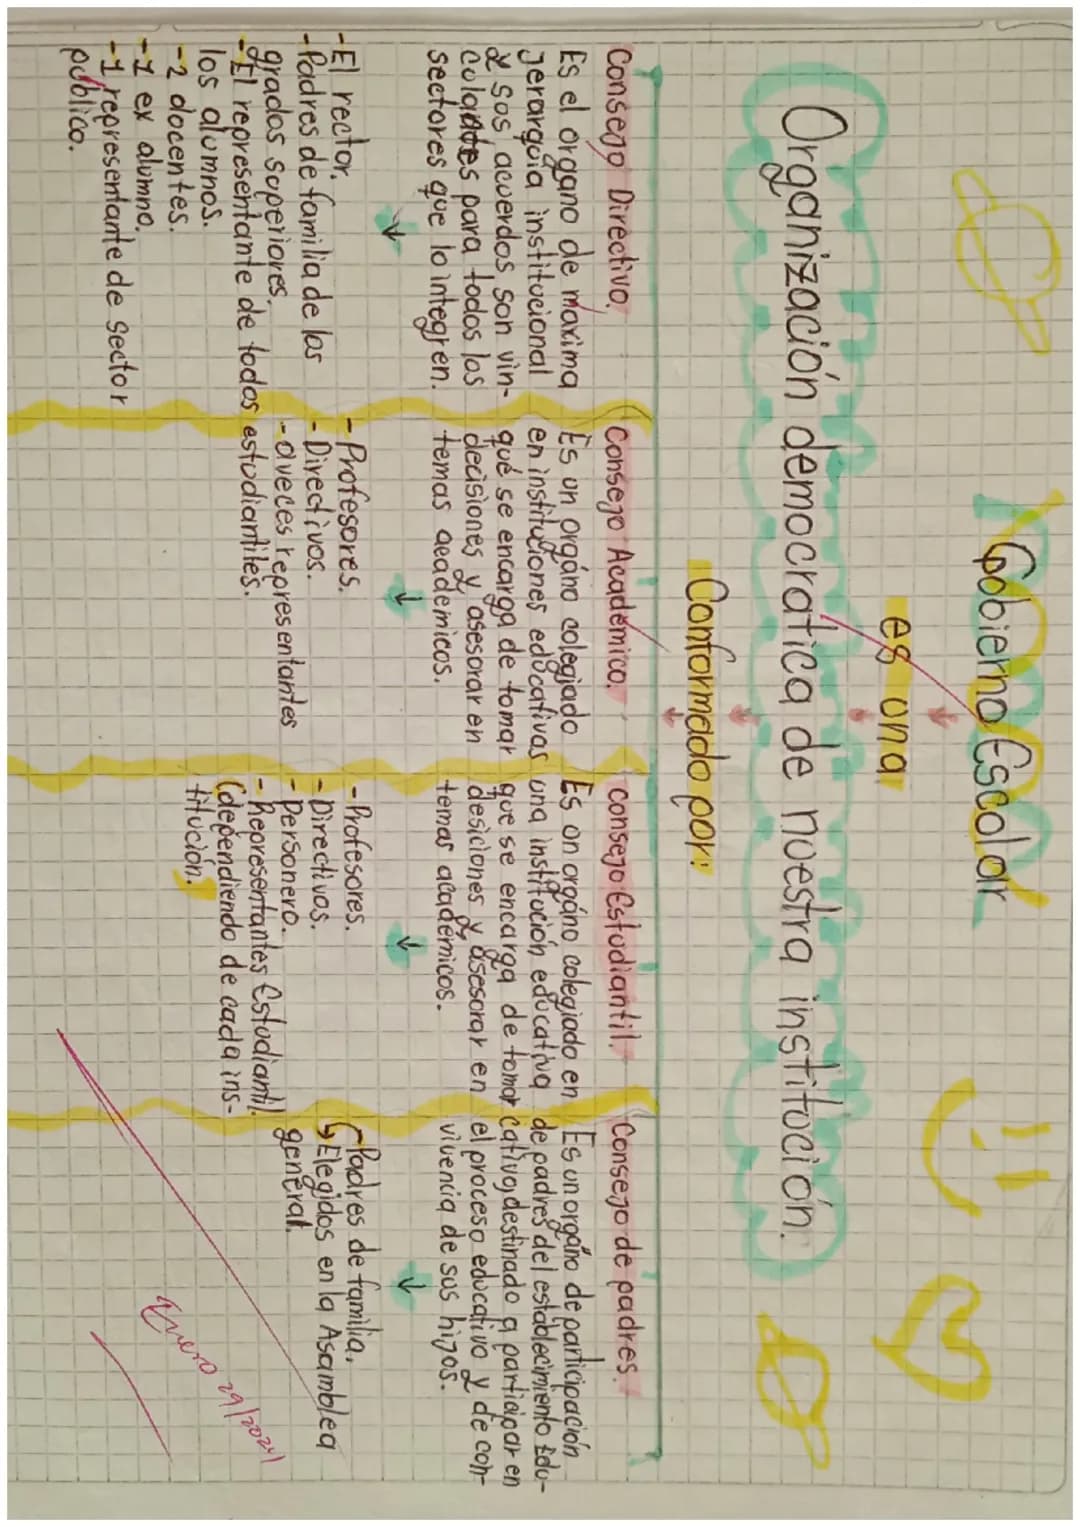 Gobierno Escolar
es una
Organización democratica de nuestra institución.
Conformado por:
Consejo Directivo.
Es el organo de maxima
jerarquia institucional
y sos acuerdos son vin-
culantes para todos los
sectores que lo integren.
-El rector.
-Padres de familia de los
grados superiores.
-El representante de todos estudiantiles.
los alumnos.
-2 docentes.
-1 ex alumno.
-1 representante de sector
público.
Consejo Académico.
Es un orgáno colegiado
en instituciones educativas
qué se encarga de tomar
decisiones y asesorar en
temas academicos.
- Profesores.
- Directivos.
- aveces representantes
consejo Estudiantil.
Es on orgáno colegiado en
una institución educativa
que se encarga de tomar
desiciones y asesorar en
temas académicos.
-Profesores.
-Directivos.
- Personero.
- Representantes Estudiantil.
(dependiendo de cada ins-
titución.)
Consejo de padres.
Es un orgáno de participación
de padres del establecimiento Edu-
cativo, destinado a participar en
el proceso educativo y de con-
vivencia de sus hijos.
Padres de familia.
Elegidos en la Asamblea
general.
Enero 29/2024